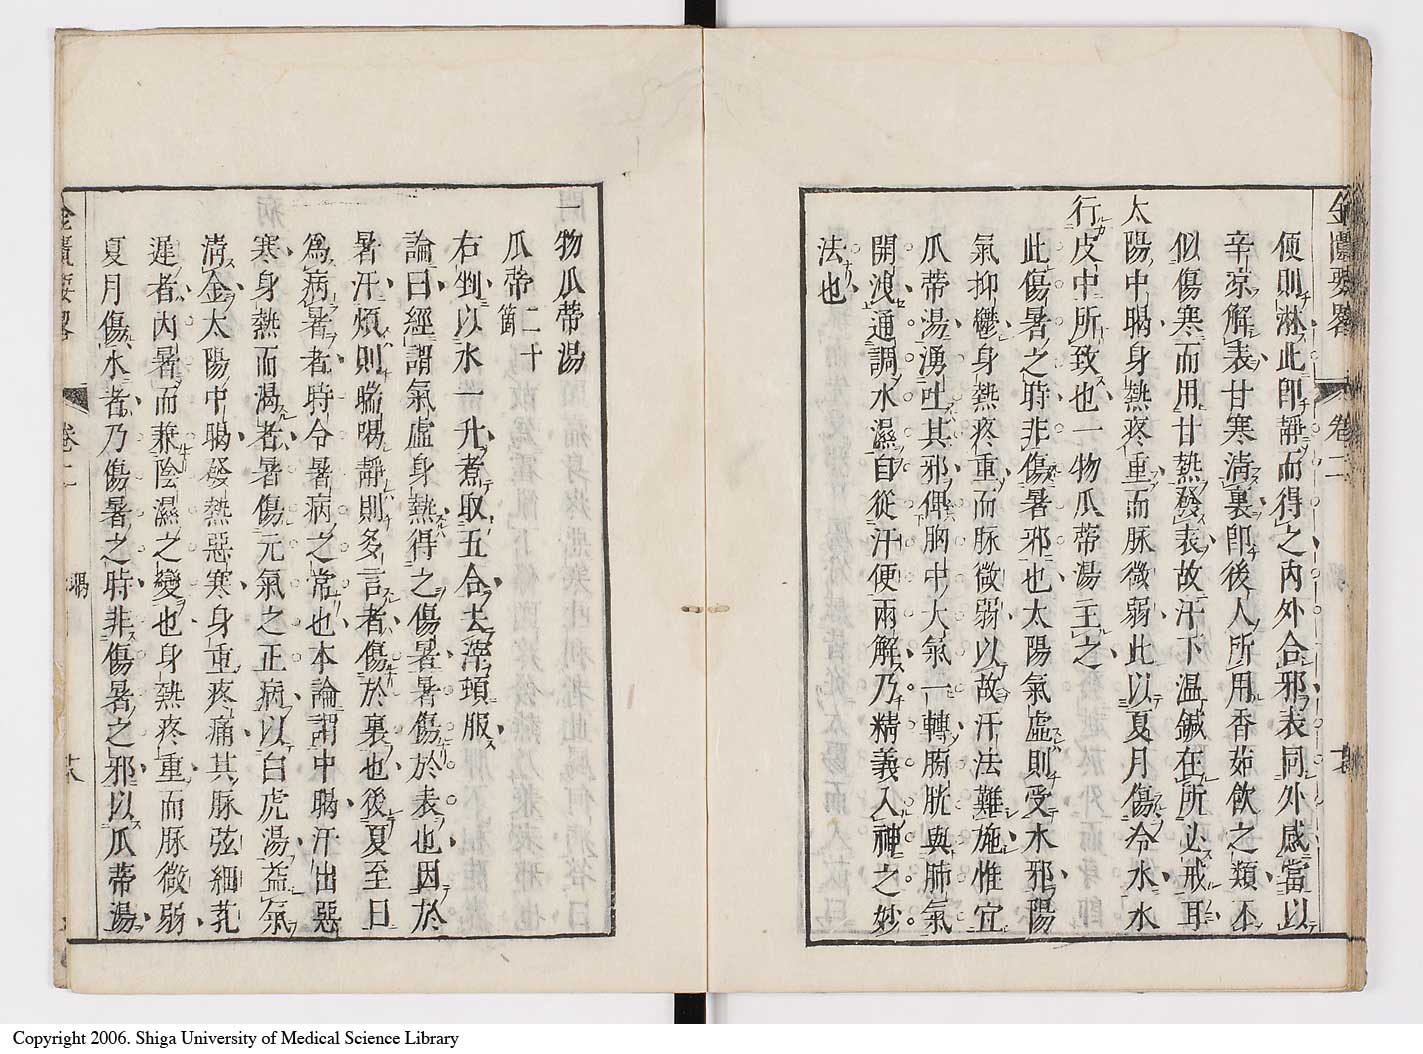 金匱要畧 卷二
便則淋此即靜而得之內外合邪表同外感當以
辛凉解表甘寒清裏即後人所用香茹飲之類不
似傷寒而用甘熱發表故汗下溫鍼在所必戒耳
太陽中暍身熱疼重而脉微弱此以夏月傷冷水水
行皮中所致也一物瓜蒂湯主之
此傷暑之時非傷暑邪也太陽氣虛則受水邪陽
氣抑鬱身熱疼重而脉微弱以故汗法難施惟宜
瓜蒂湯湧吐其邪俾胸中大氣一轉膀胱與肺氣
開洩通調水濕自從汗便兩解乃精義入神之妙
法也
一物瓜蒂湯
瓜蒂二十箇
右剉以水一升煮取五合去滓頓服
論曰經謂氣虛身熱得之傷暑暑傷於表也因於
暑汗煩則喘喝靜則多言者傷於裏也後夏至日
為病暑者時令暑病之常也本論謂中暍汗出惡
寒身熱而渴者暑傷元氣之正病以白虎湯益氣
清金太陽中暍發熱惡寒身重疼痛其脉弦細芤
遲者內暑而兼陰濕之變也身熱疼重而脉微弱
夏月傷水者乃傷暑之時非傷暑之邪以瓜蒂湯
金匱要畧 卷二 暍 十八